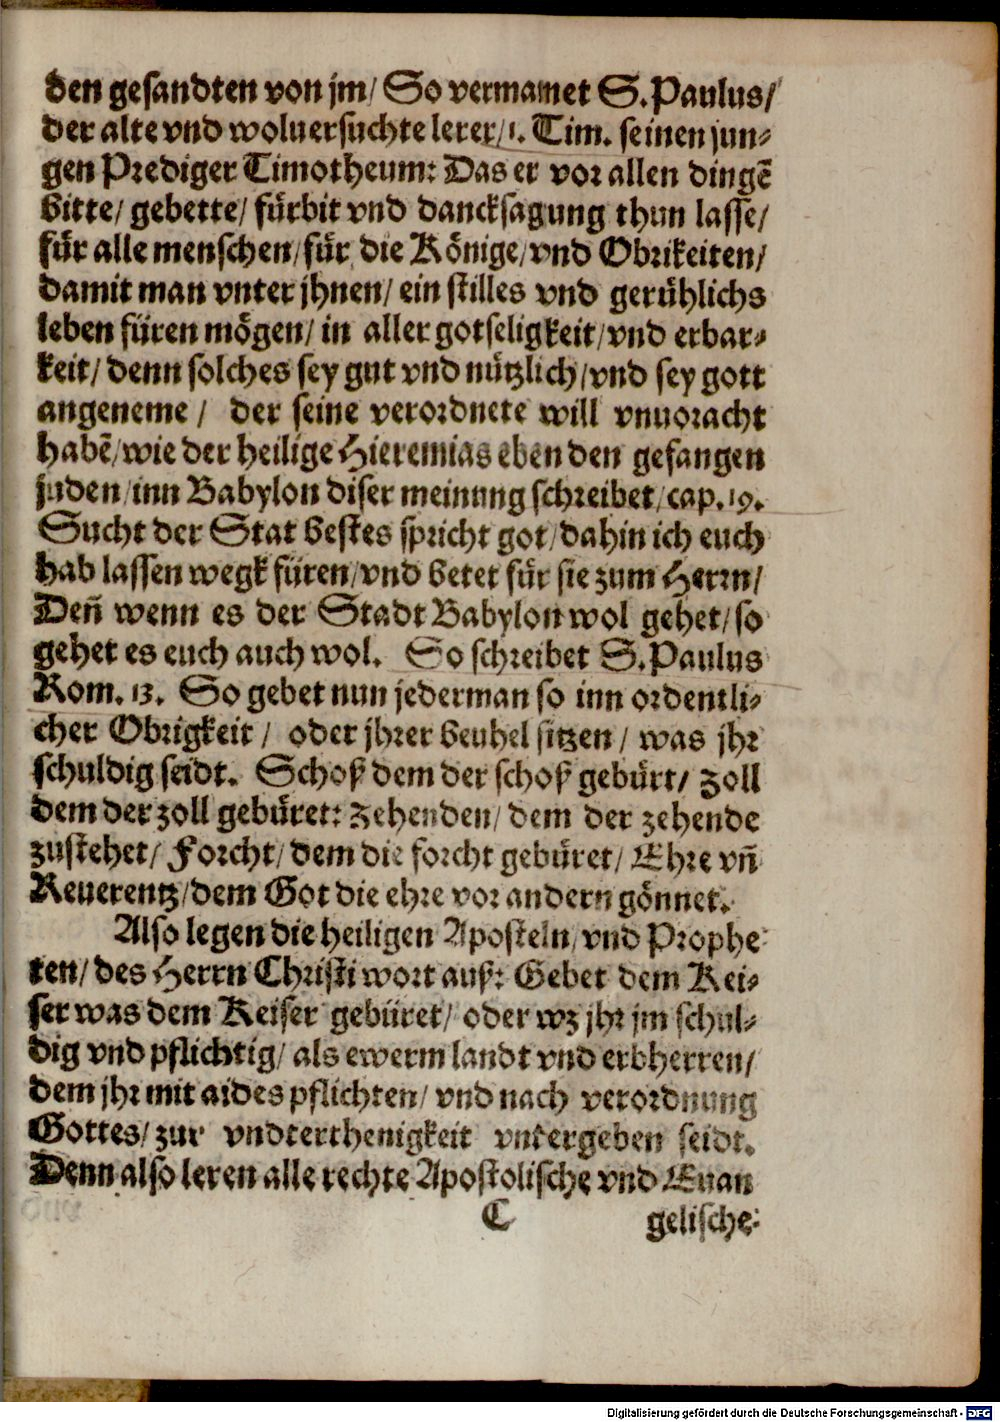 den gesandten von jm/ So vermamet S. Paulus/
der alte vnd woluersuchte lerer/1. Tim. seinen jun-
gen Prediger Timotheum: Das er vor allen dingē
bitte/ gebette/ fürbit vnd dancksagung thun lasse/
für alle menschen/für die Könige/vnd Obrikeiten/
damit man vnter jhnen/ ein stilles vnd gerühlichs
leben füren mögen/ in aller gotseligkeit/vnd erbar-
keit/ denn solches sey gut vnd nützlich/vnd sey gott
angeneme / der seine verordnete will vnuoracht
habē/wie der heilige Hieremias eben den gefangen
juden/inn Babylon diser meinung schreibet/cap.19.
Sucht der Stat bestes spricht got/dahin ich euch
hab lassen wegk füren/vnd betet für sie zum Herrn/
Deñ wenn es der Stadt Babylon wol gehet/so
gehet es euch auch wol. So schreibet S. Paulus
Rom. 13. So gebet nun jederman so inn ordentli-
cher Obrigkeit / oder jhrer beuhel sitzen / was jhr
schuldig seidt. Schoß dem der schoß gebürt/ zoll
dem der zoll gebüret: zehenden/ dem der zehende
zustehet/ Forcht/ dem die forcht gebüret/ Ehre vñ
Reuerentz/dem Got die ehre vor andern gönnet.
Also legen die heiligen Aposteln/vnd Prophe-
ten/ des Herrn Christi wort auß: Gebet dem Kei-
ser was dem Keiser gebüret/ oder wz jhr jm schul-
dig vnd pflichtig/ als ewerm landt vnd erbherren/
dem jhr mit aides pflichten/ vnd nach verordnung
Gottes/ zur vndterthenigkeit vntergeben seidt.
Denn also leren alle rechte Apostolische vnd Euan
C gelische-
Digitalisierung gefördert durch die Deutsche Forschungsgemeinschaft - DFG